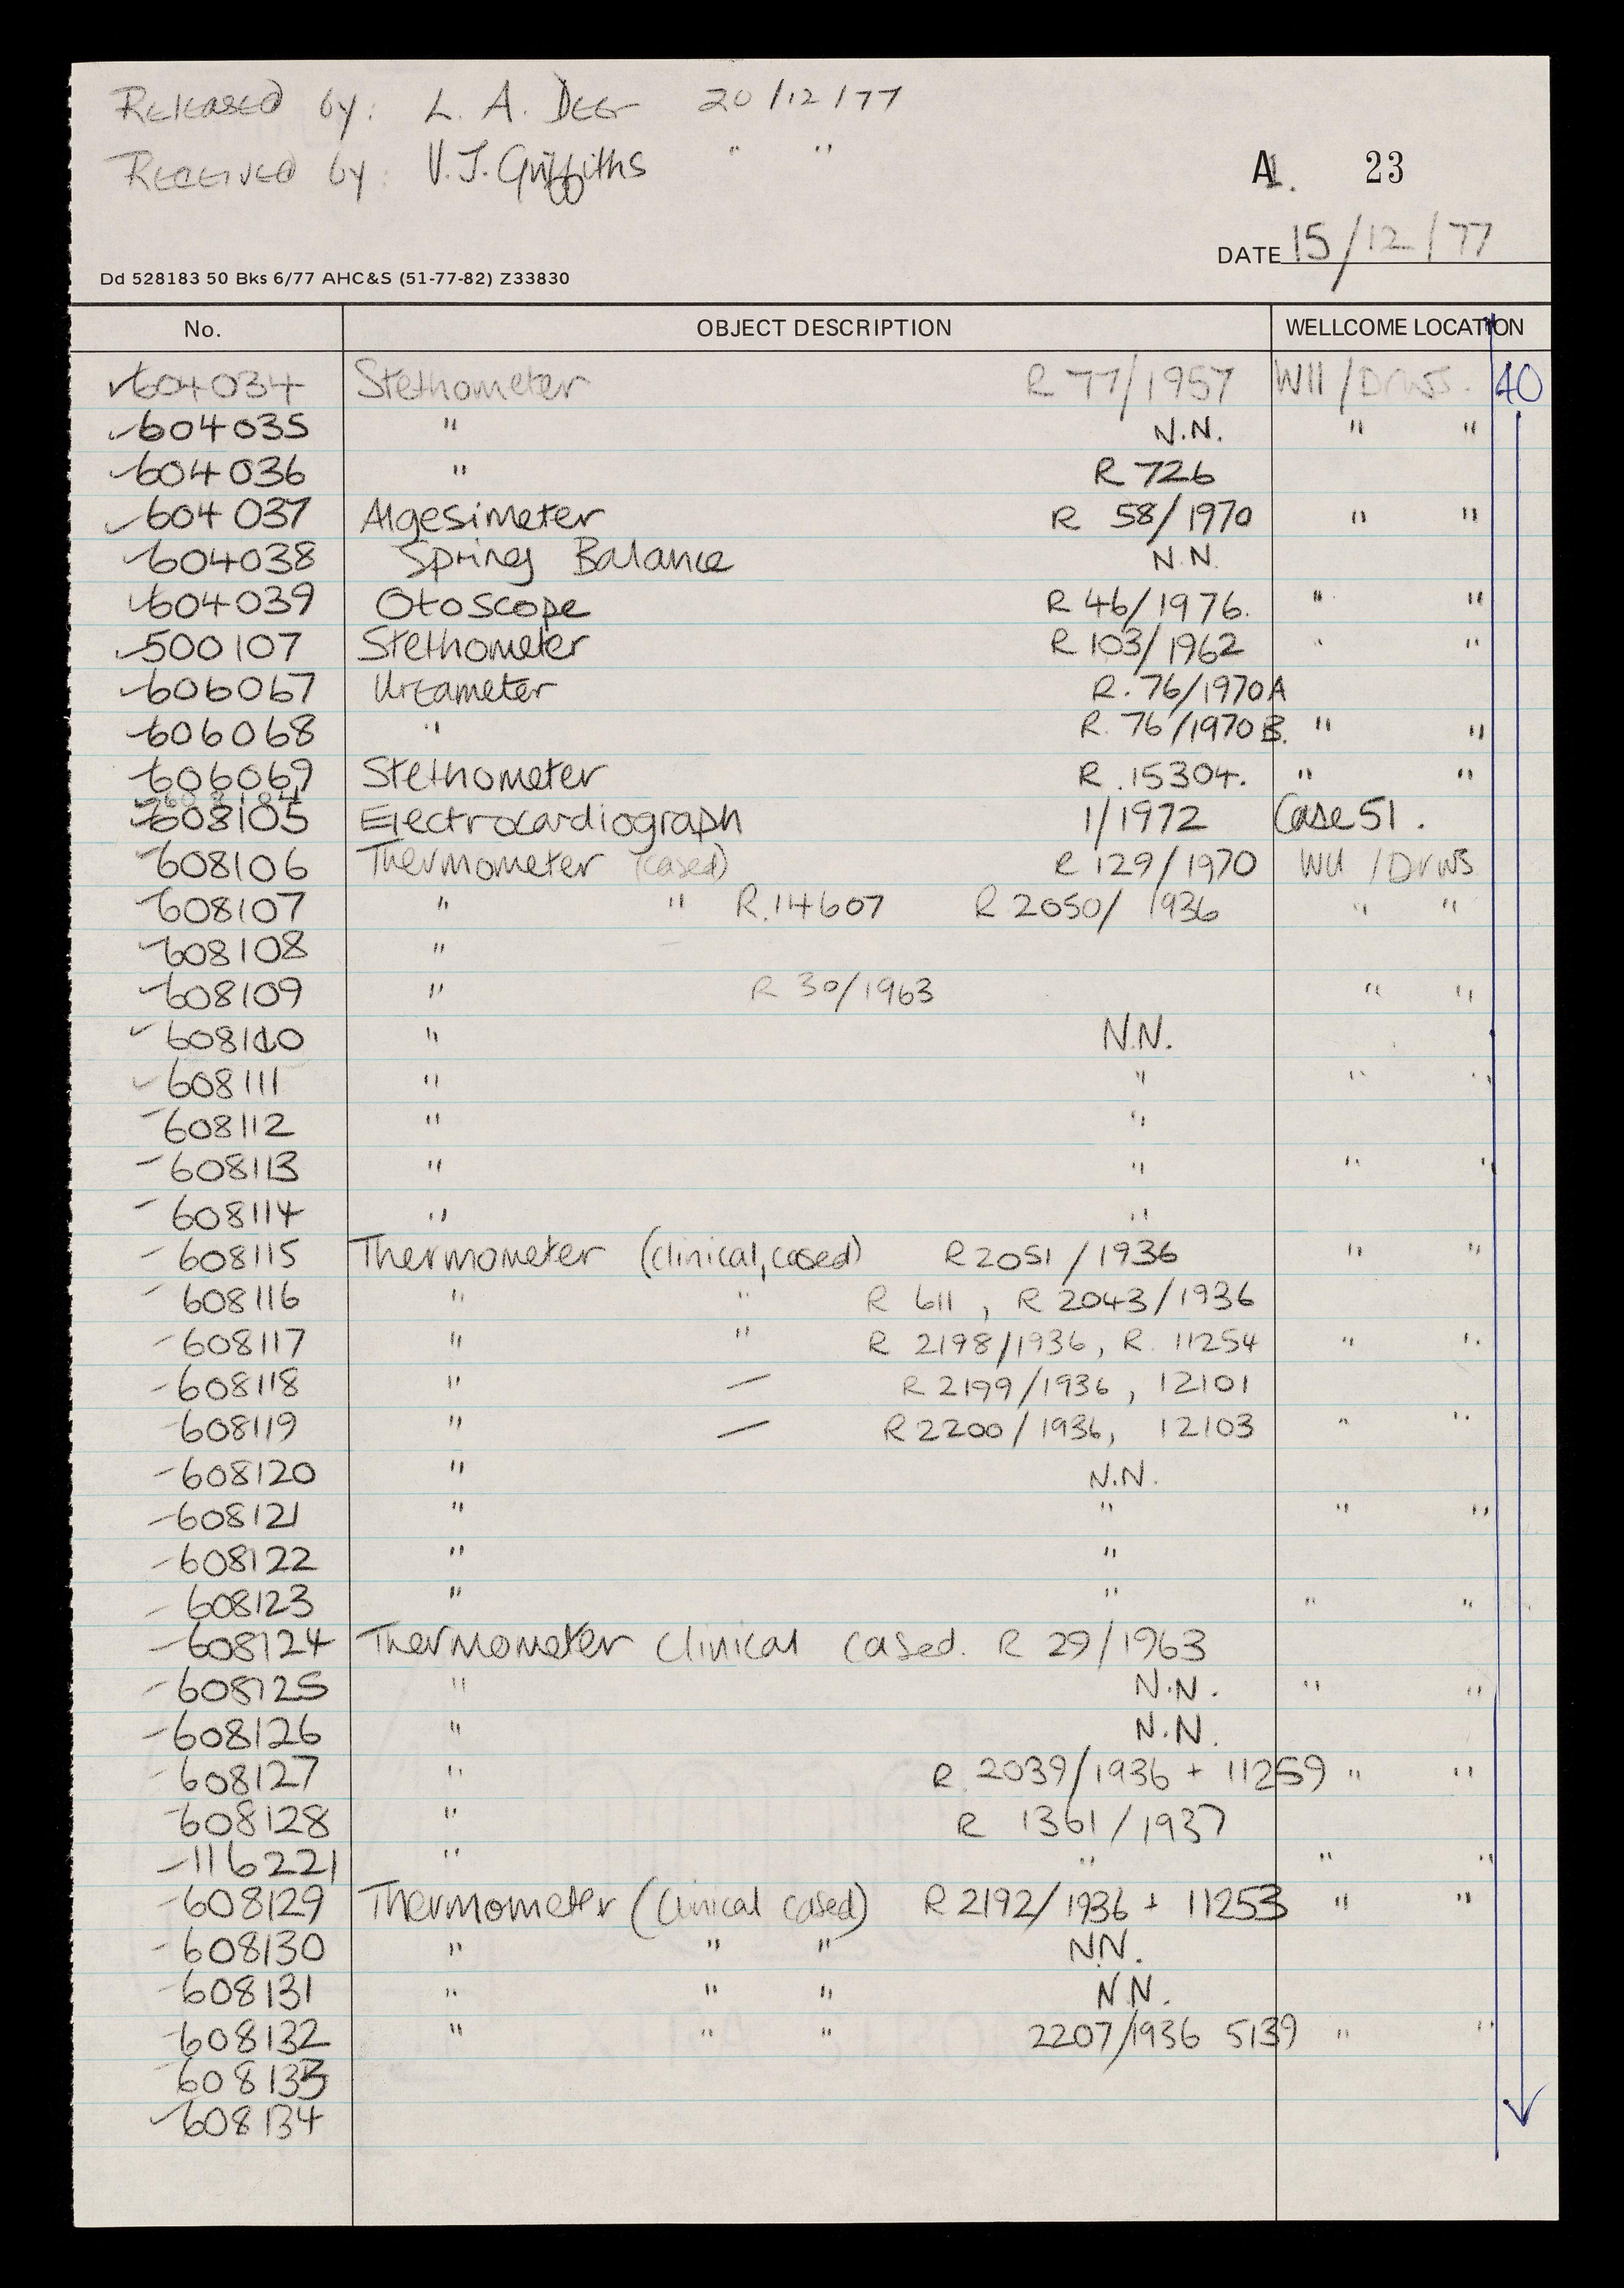 Released by: L. A. Deer 20/12/77
Received by: V. J. Griffiths " "
A1. 23
DATE 15/12/77
Dd 528183 50 Bks 6/77 AHC&S (51-77-82) Z33830
No. OBJECT DESCRIPTION WELLCOME LOCATION
604034 Stethometer R 77/1957 W11/Drws. 40
604035 " N.N. " "
604036 " R 726
604037 Algesimeter R 58/1970 " "
604038 Spring Balance N.N.
604039 Otoscope R 46/1976. " "
500107 Stethometer R 103/1962 " "
606067 Ureameter R. 76/1970A
606068 " R. 76/1970B. " "
606069 Stethometer R.15304. " "
608105 Electrocardiograph 1/1972 Case 51.
608106 Thermometer (cased) R 129/1970 W11/Drws
608107 " " R.14607 R 2050/1936 " "
608108 "
608109 " R 30/1963 " "
608110 " N.N.
608111 " " " "
608112 " "
608113 " " " "
608114 " "
608115 Thermometer (clinical, cased) R 2051/1936 " "
608116 " " R 611, R 2043/1936
608117 " " R 2198/1936, R. 11254 " "
608118 " — R 2199/1936, 12101
608119 " — R 2200/1936, 12103 " "
608120 " N.N.
608121 " " " "
608122 " "
608123 " " " "
608124 Thermometer clinical cased. R 29/1963
608125 " N.N. " "
608126 " N.N.
608127 " R. 2039/1936 + 11259 " "
608128 " R 1361/1937
1116221 " " " "
608129 Thermometer (clinical cased) R 2192/1936 + 11253 " "
608130 " " " N.N.
608131 " " " N.N.
608132 " " " 2207/1936 5139 " "
608133
608134